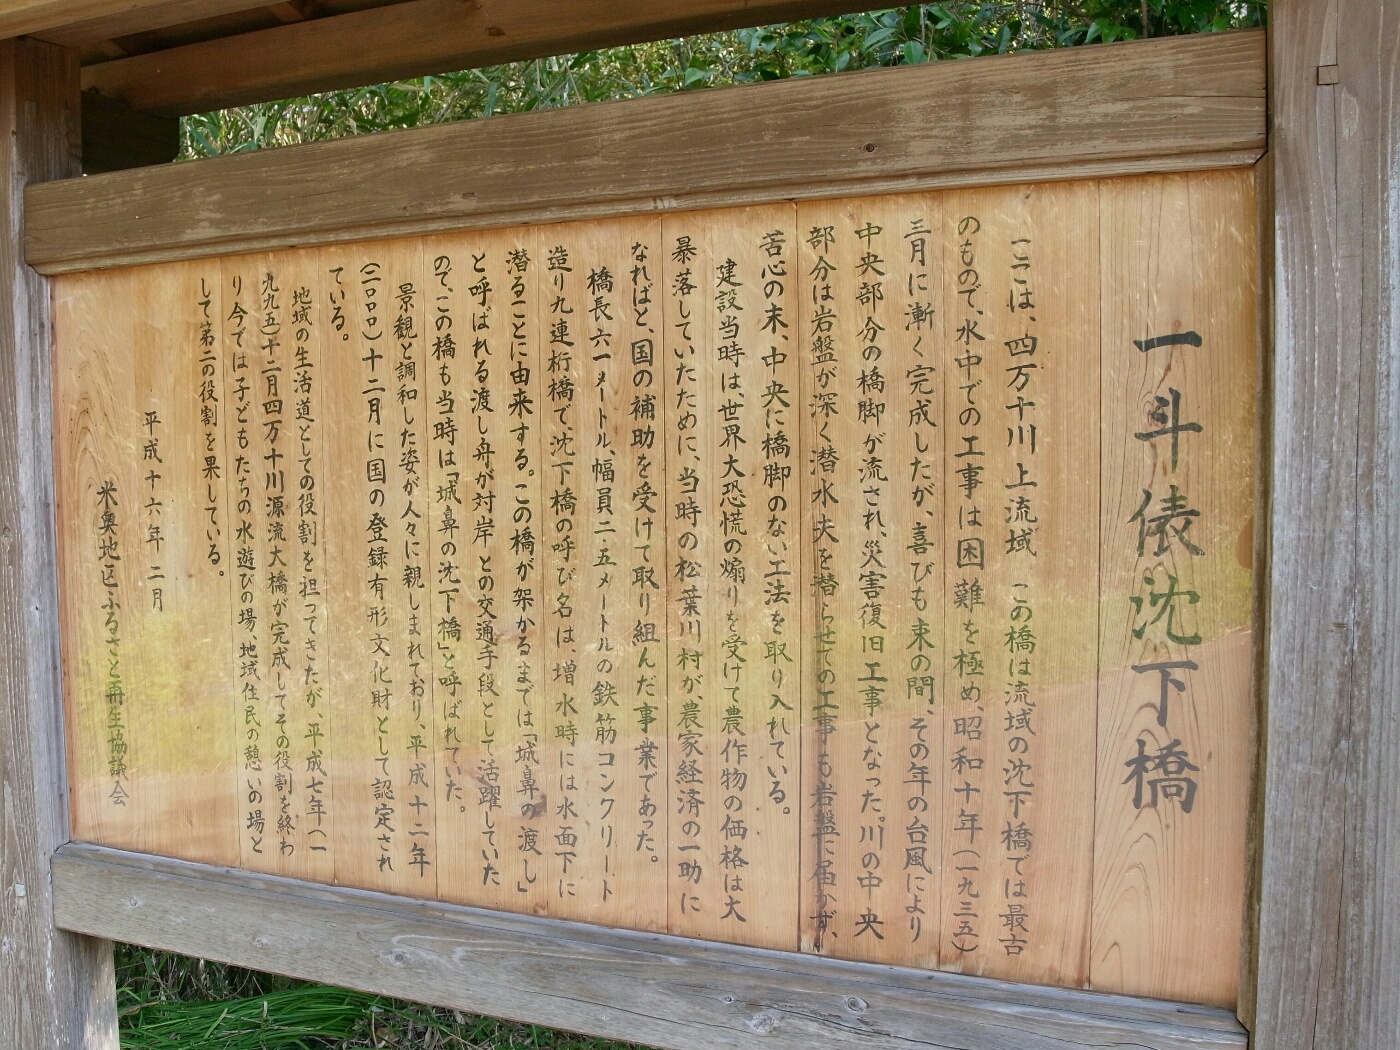 一斗俵沈下橋
ここは、四万十川上流域 この橋は流域の沈下橋では最古
のもので、水中での工事は困難を極め、昭和十年(一九三五)
三月に漸く完成したが、喜びも束の間、その年の台風により
中央部分の橋脚が流され、災害復旧工事となった。川の中央
部分は岩盤が深く潜水夫を潜らせての工事も岩盤に届かず、
苦心の末、中央に橋脚のない工法を取り入れている。
建設当時は、世界大恐慌の煽りを受けて農作物の価格は大
暴落していたために、当時の松葉川村が、農家経済の一助に
なればと、国の補助を受けて取り組んだ事業であった。
橋長六一メートル、幅員二・五メートルの鉄筋コンクリート
造り九連桁橋で、沈下橋の呼び名は、増水時には水面下に
潜ることに由来する。この橋が架かるまでは「城鼻の渡し」
と呼ばれる渡し舟が対岸との交通手段として活躍していた
ので、この橋も当時は「城鼻の沈下橋」と呼ばれていた。
景観と調和した姿が人々に親しまれており、平成十二年
(二〇〇〇)十二月に国の登録有形文化財として認定され
ている。
地域の生活道としての役割を担ってきたが、平成七年(一
九九五)十二月四万十川源流大橋が完成してその役割を終わ
り今では子どもたちの水遊びの場、地域住民の憩いの場と
して第二の役割を果している。
平成十六年 二月
米奥地区ふるさと再生協議会